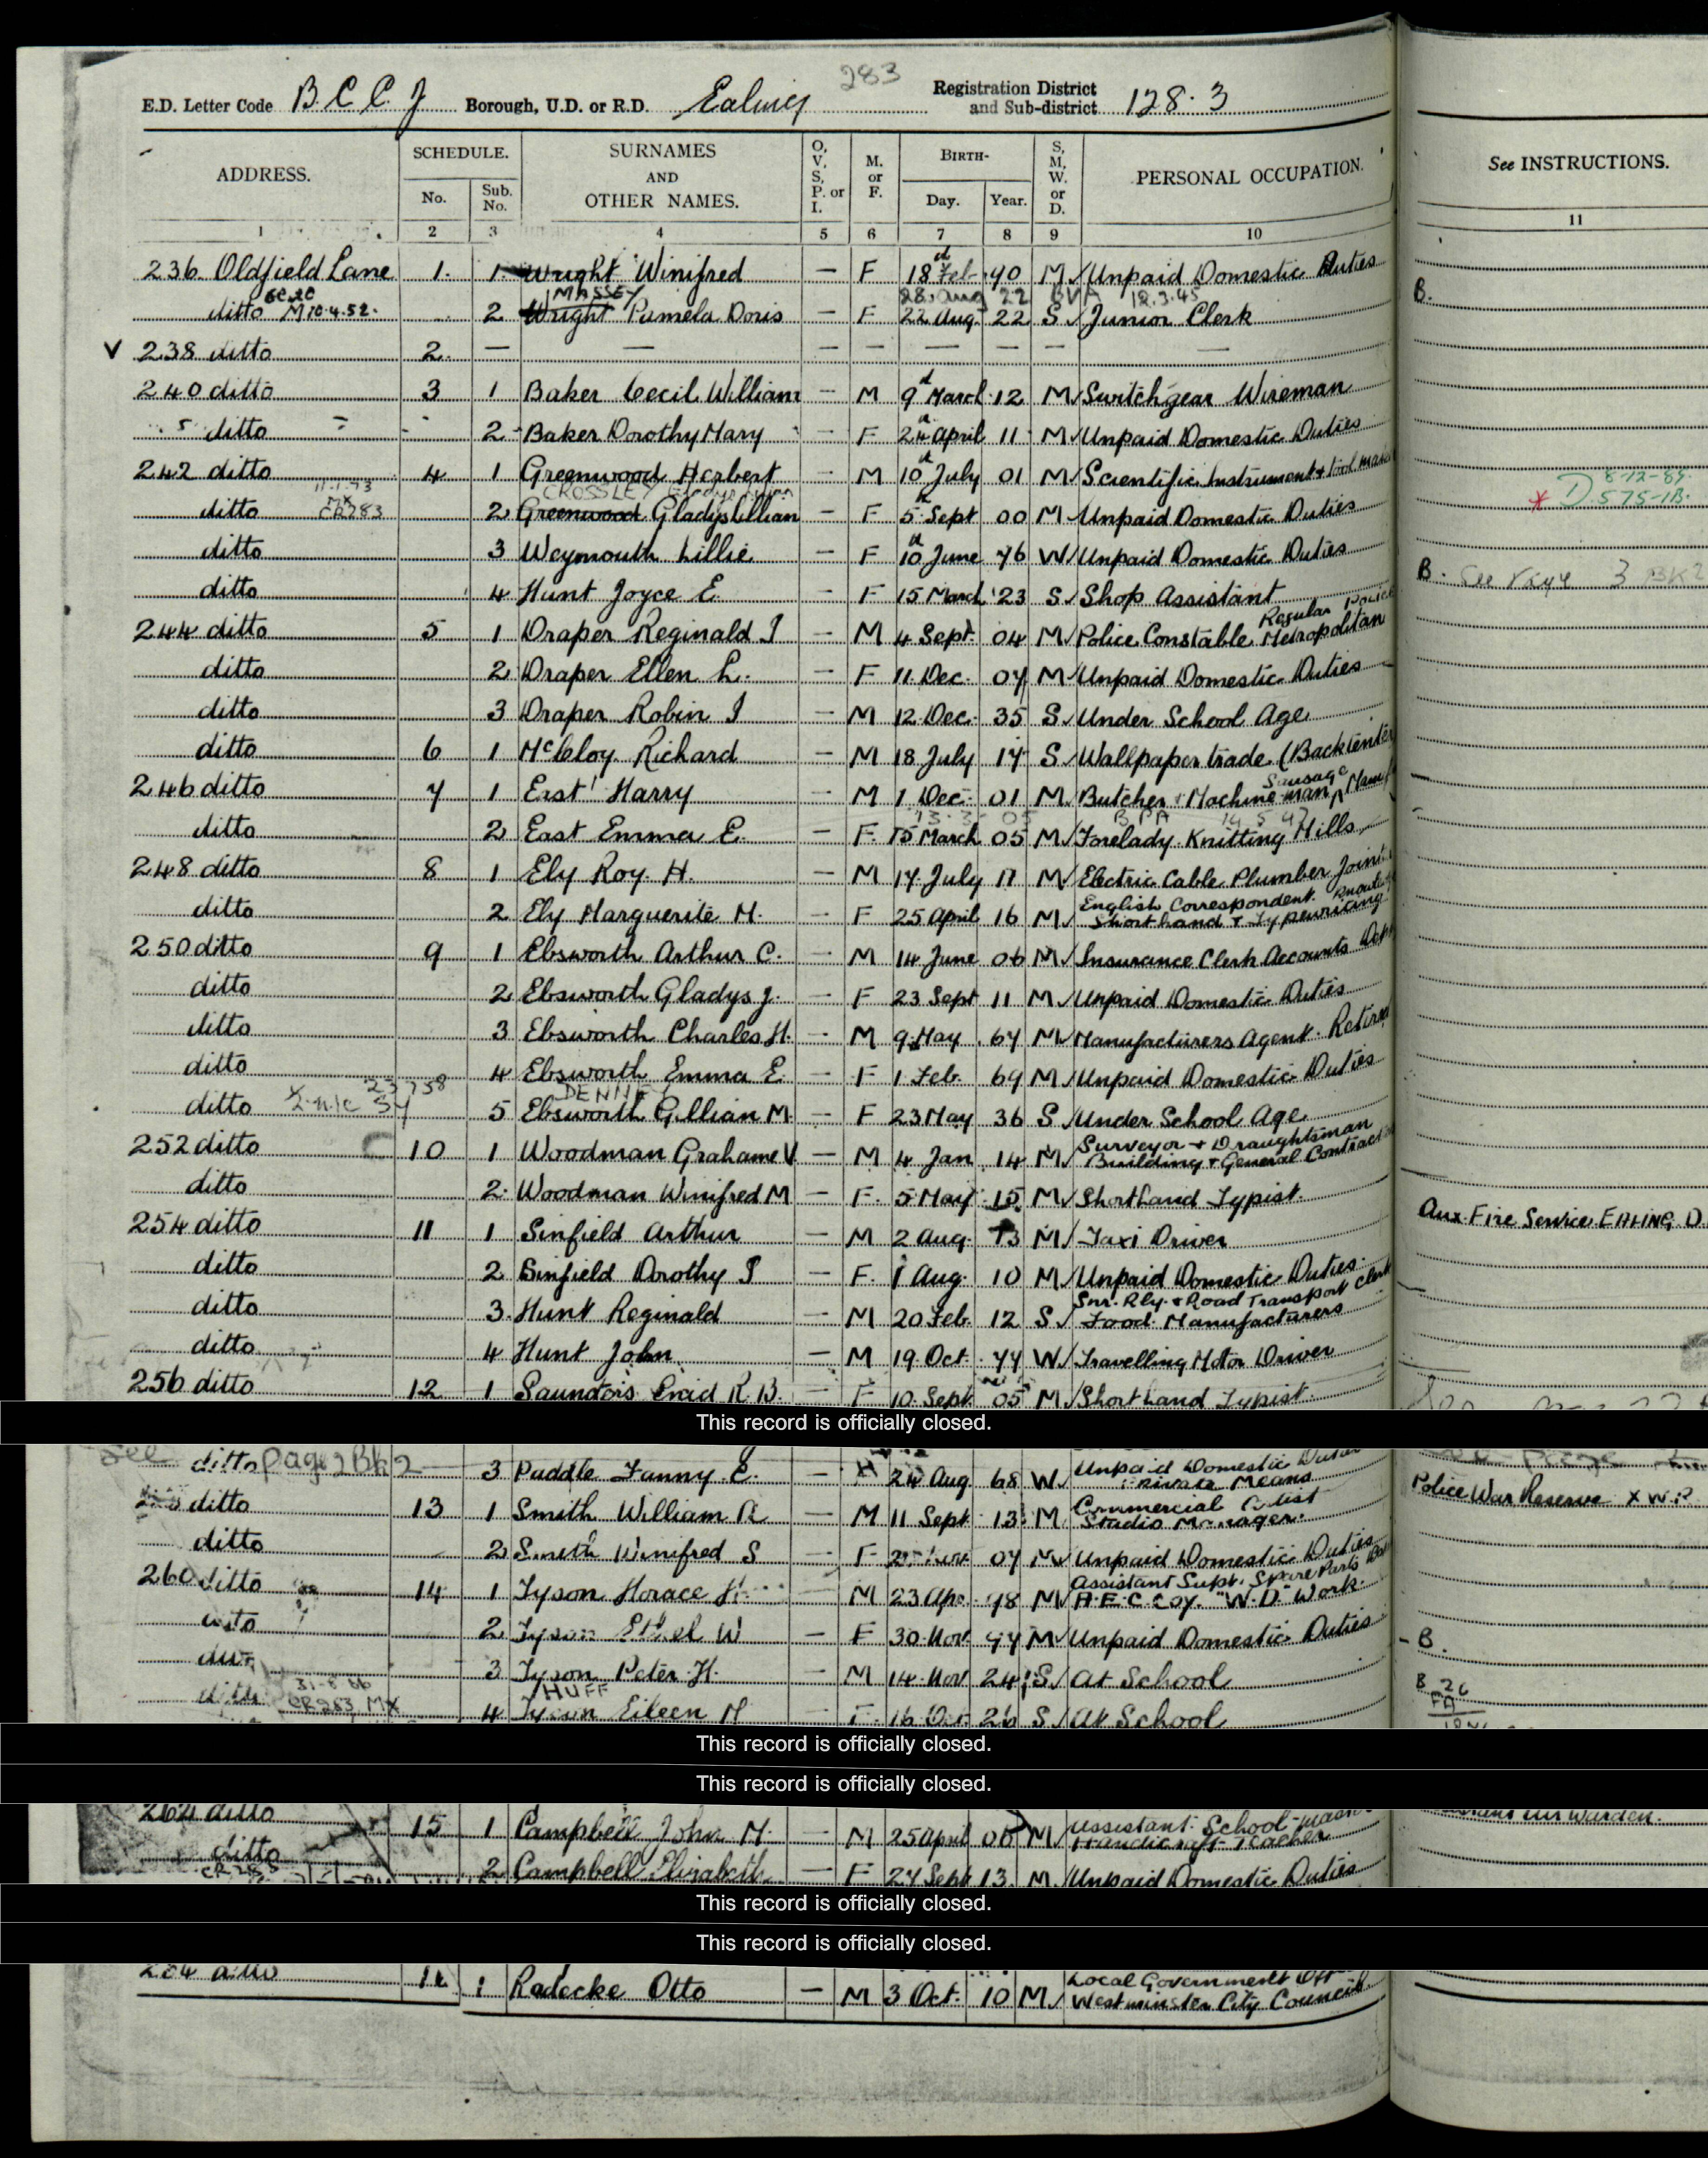 283
E.D. Letter Code B.C.C.J Borough, U.D. or R.D. Ealing Registration District and Sub-district 128.3
ADDRESS. SCHEDULE. No. Sub. No. SURNAMES AND OTHER NAMES. O, V, S, P. or I. M. or F. BIRTH- Day. Year. S, M, W. or D. PERSONAL OCCUPATION. See INSTRUCTIONS.
1 2 3 4 5 6 7 8 9 10 11
236 Oldfield Lane 1. 1. Wright Winifred — F 18 Feb 90 M Unpaid Domestic Duties
MASSEY 28 Aug 22 BVA 12.3.45 B.
ditto M10.4.52. 2 Wright Pamela Doris — F 22 Aug 22 S Junior Clerk
V 238 ditto 2. — — — — — — — —
240 ditto 3 1 Baker Cecil William — M 9 March 12 M Switchgear Wireman
ditto 2 Baker Dorothy Mary — F 24 April 11 M Unpaid Domestic Duties
242 ditto 4 1 Greenwood Herbert — M 10 July 01 M Scientific Instrument & tool
11.1.73 CROSSLEY 8-12-89
ditto MX CR283 2 Greenwood Gladys Lillian — F 5 Sept 00 M Unpaid Domestic Duties D575-1B.
ditto 3 Weymouth Lillie — F 10 June 76 W Unpaid Domestic Duties
ditto 4 Hunt Joyce E. — F 15 March 23 S Shop Assistant B. See Page 3 BK2
244 ditto 5 1 Draper Reginald J — M 4 Sept. 04 M Police Constable Regular Police Metropolitan
ditto 2 Draper Ellen L. — F 11 Dec. 07 M Unpaid Domestic Duties
ditto 3 Draper Robin J — M 12 Dec. 35 S Under School Age
ditto 6 1 McCloy Richard — M 18 July 17 S Wallpaper trade (Backtender
246 ditto 7 1 East Harry — M 1 Dec. 01 M Butcher Machine man Sausage Manf
13.3.05 BPA
ditto 2 East Emma E. — F. 15 March 05 M Forelady Knitting Mills
248 ditto 8 1 Ely Roy. H. — M 17 July 11 M Electric Cable Plumber Joint
ditto 2 Ely Marguerite M. — F 25 April 16 M English Correspondent. Shorthand & Typewriting
250 ditto 9 1 Ebsworth Arthur C. — M 14 June 06 M Insurance Clerk Accounts Dept
ditto 2 Ebsworth Gladys J. — F 23 Sept 11 M Unpaid Domestic Duties
ditto 3 Ebsworth Charles H. — M 9 May 67 M Manufacturers Agent. Retired
ditto 4 Ebsworth Emma E. — F 1 Feb. 69 M Unpaid Domestic Duties
DENNEY
ditto 5 Ebsworth Gillian M. — F 23 May 36 S Under School Age
252 ditto 10 1 Woodman Grahame V — M 4 Jan 14 M Surveyor & Draughtsman Building & General Contract
ditto 2 Woodman Winifred M — F. 5 May 15 M Shorthand Typist.
254 ditto 11 1 Sinfield Arthur — M 2 Aug. 13 M Taxi Driver Aux. Fire Service. EALING. D
ditto 2 Sinfield Dorothy J — F. 1 Aug. 10 M Unpaid Domestic Duties.
ditto 3. Hunt Reginald — M 20 Feb 12 S Snr. Rly. & Road Transport Clerk Food Manufacturers
ditto 4 Hunt John — M 19 Oct. 77 W Travelling Motor Driver
256 ditto 12 1 Saunders Enid R. B. — F 10 Sept 05 M Shorthand Typist.
This record is officially closed.
See ditto page 2 Bk 2 3 Puddle Fanny E. — 24 Aug 68 W Unpaid Domestic Duties Private Means
ditto 13 1 Smith William R — M 11 Sept 13 M Commercial Artist Studio Manager. Police War Reserve X W.R.
ditto 2 Smith Winifred S — F 07 M Unpaid Domestic Duties
260 ditto 14 1 Tyson Horace H. — M 23 Apr. 98 M Assistant Supt. Spare Parts A.E.C. Coy. "W.D." Work.
2 Tyson Ethel W — F 30 Nov 97 M Unpaid Domestic Duties
3 Tyson Peter H. — M 14 Nov 24 S At School B.
31-8-66 HUFF
CR283 MX 4 Tyson Eileen M — F. 16 Dec 26 S At School B 26
This record is officially closed.
This record is officially closed.
262 ditto 15 1 Campbell John M. — M 25 April M Assistant School-master Handicraft Teacher Warden.
ditto CR283 2 Campbell Elizabeth — F 27 Sept 13. M Unpaid Domestic Duties
This record is officially closed.
This record is officially closed.
264 ditto 16 1 Radecke Otto — M 3 Oct. 10 M Local Government Off Westminster City Council.